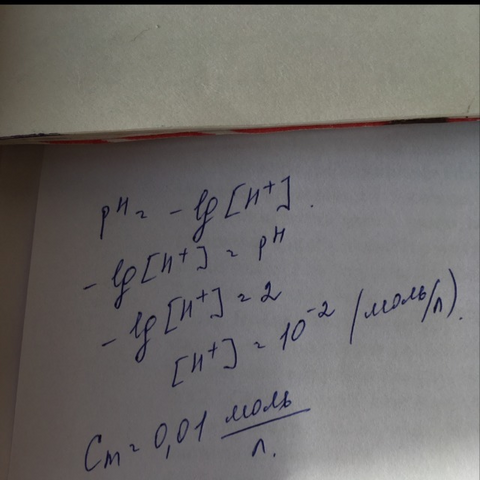 pH = - lg [H⁺].
- lg [H⁺] = pH
- lg [H⁺] = 2
[H⁺] = 10⁻² (моль/л).
Cm = 0,01 моль/л.